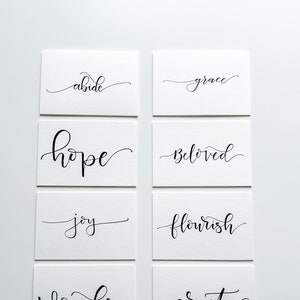 abide
grace
hope
Beloved
joy
flourish